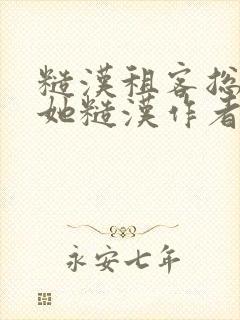 糙漢租客總
她糙漢作者
永安七年